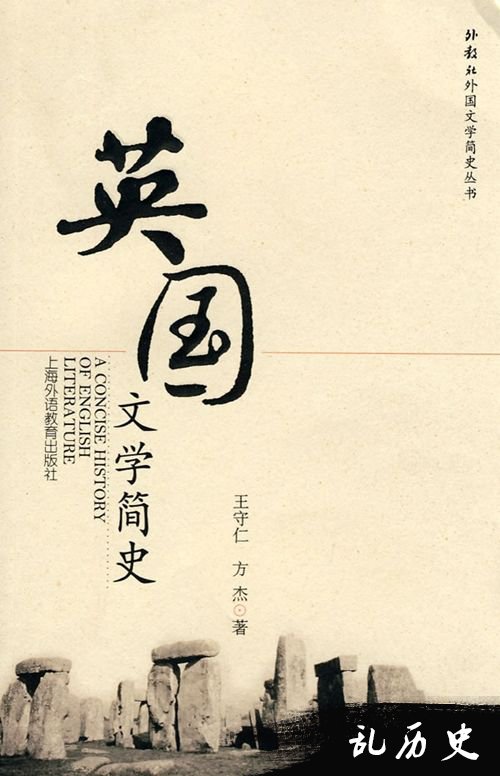 外教社外国文学简史丛书
英国
文学简史
A CONCISE HISTORY
OF ENGLISH
LITERATURE
上海外语教育出版社
王守仁 方杰 著
乱历史